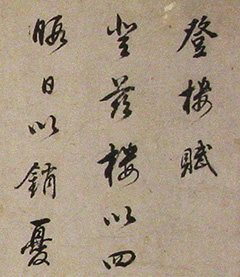 登樓賦
登茲樓以四
暇日以銷憂